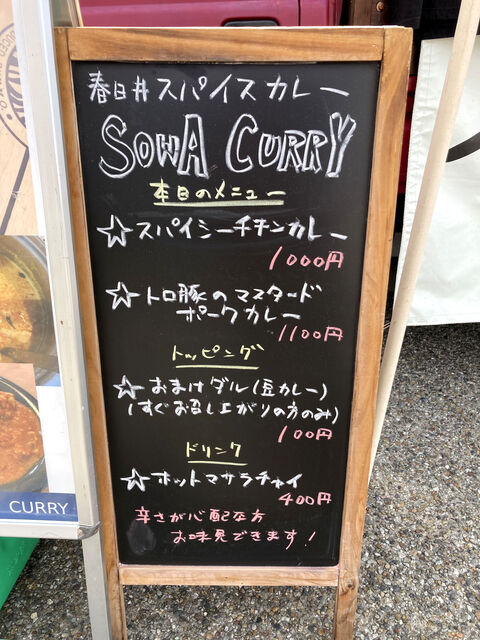 春日井スパイスカレー
SOWA CURRY
本日のメニュー
☆スパイシーチキンカレー
1000円
☆トロ豚のマスタード
ポークカレー
1100円
トッピング
☆おまけダル(豆カレー)
(すぐお召し上がりの方のみ)
100円
ドリンク
☆ホットマサラチャイ
400円
辛さが心配な方
お味見できます!
CURRY